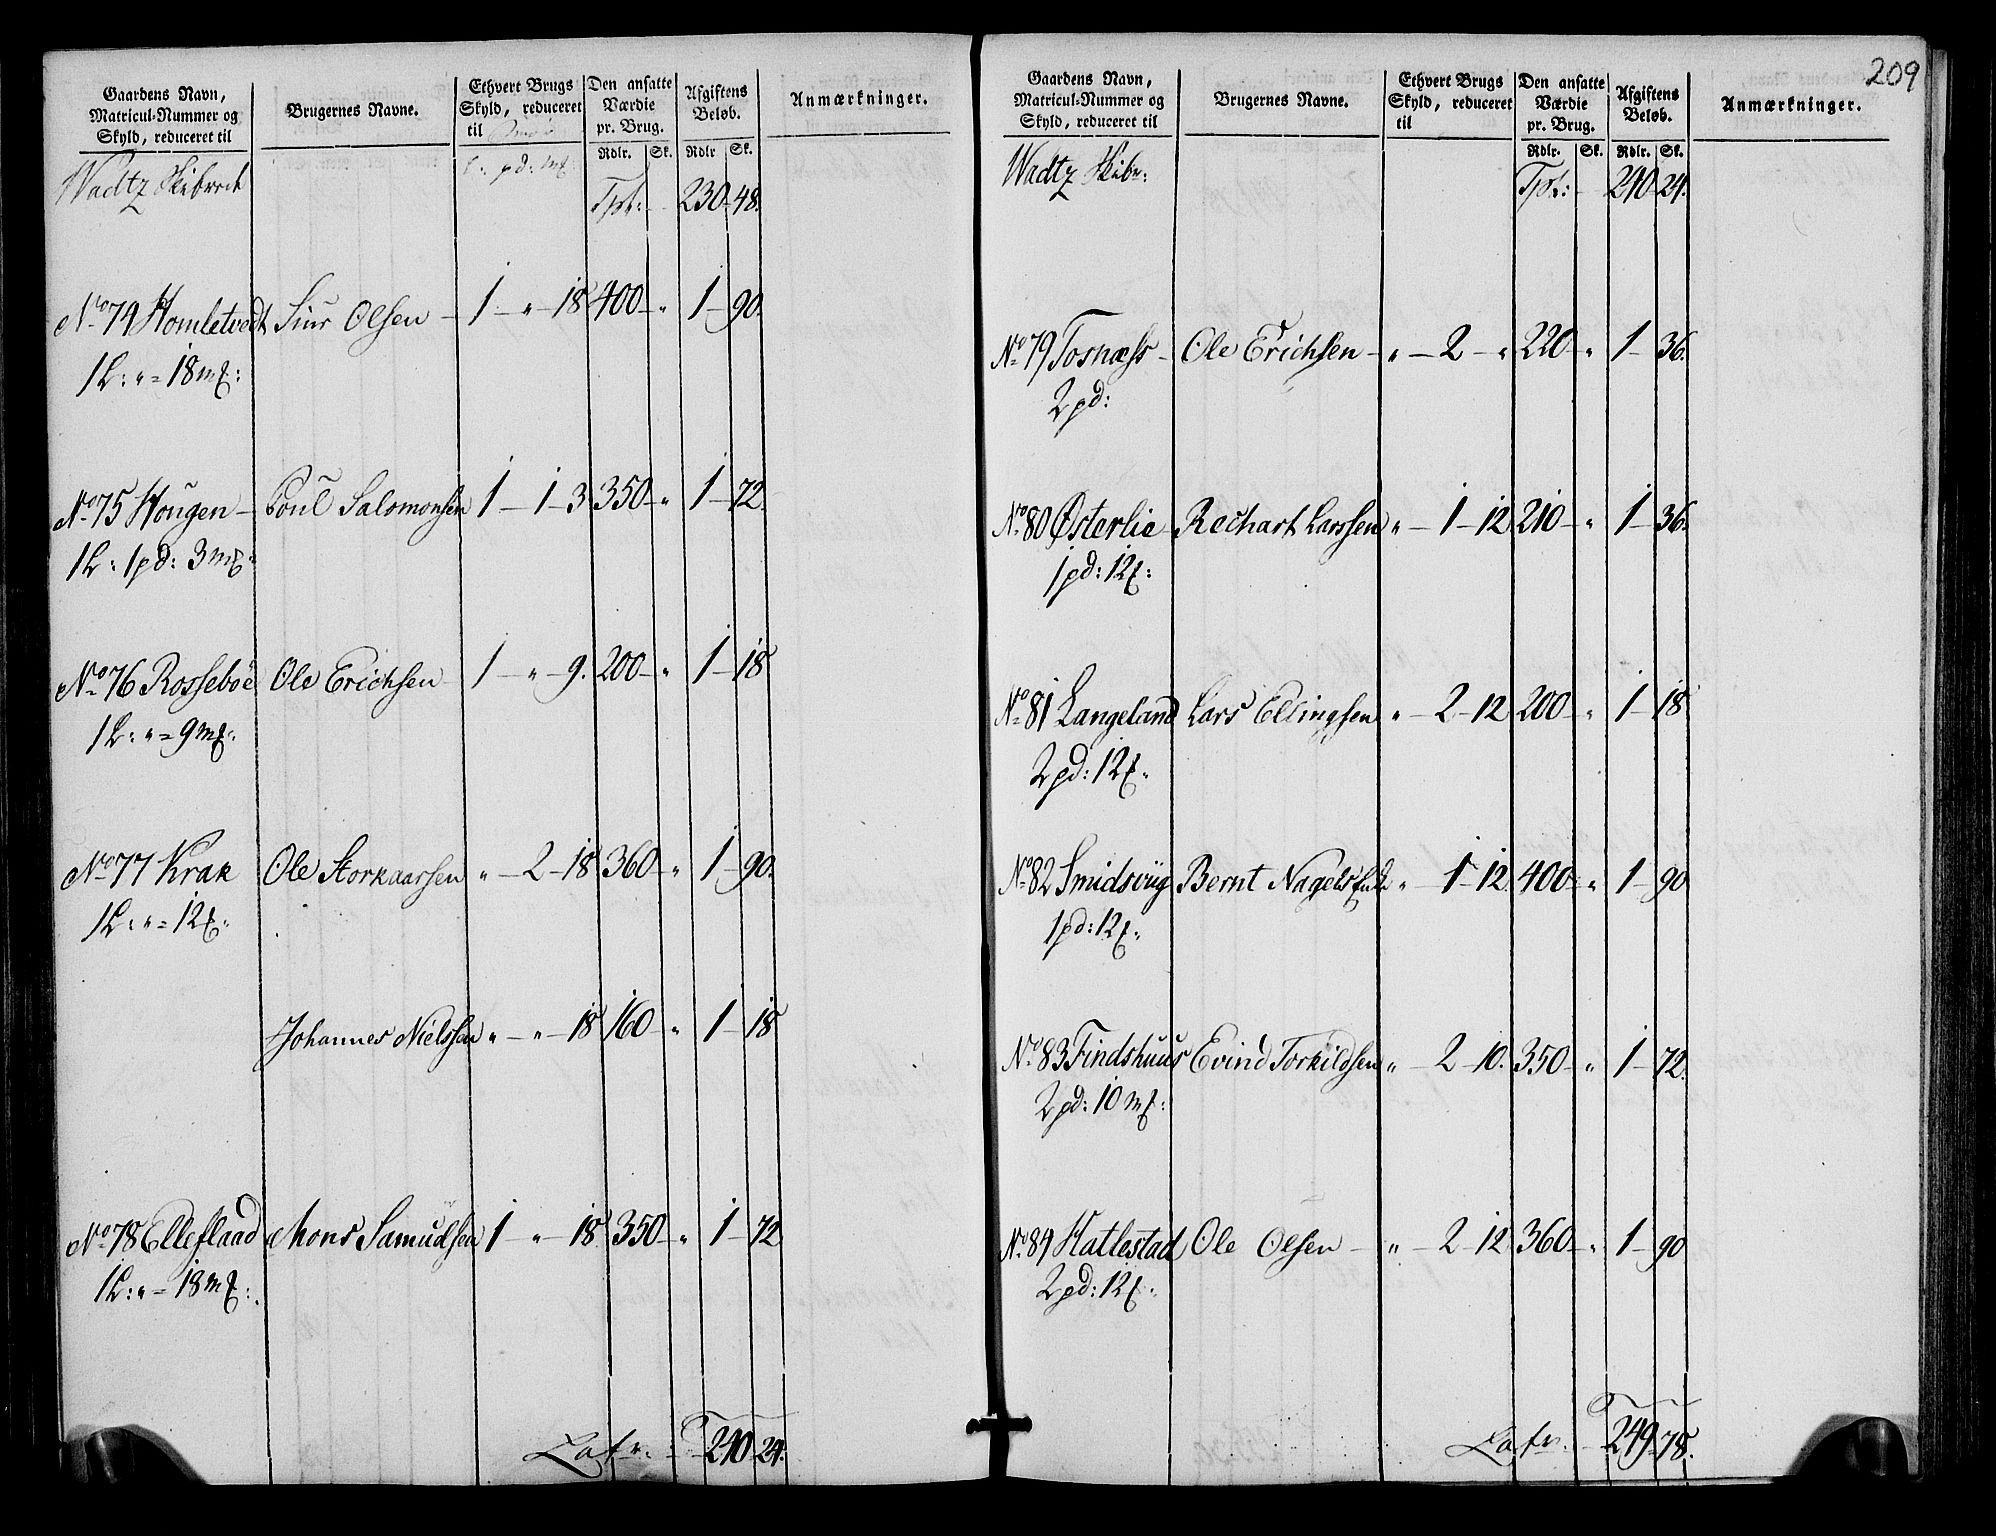 Gaardens Navn, Matricul-Nummer og Skyld, reduceret til
Brugernes Navne.
Ethvert Brugs Skyld, reduceret til
Den ansatte Værdie pr. Brug.
Rdlr. Sk.
Afgiftens Beløb.
Rdlr Sk.
Anmærkninger.
Wadtz Skibrede
L: pd: mk
Tpt: 230-48.
No 74 Homletvedt Siur Olsen - 1 - " - 18 400 - " 1 - 90.
1 L: " = 18 mk:
No 75 Hougen - Poul Salomonsen 1 - 1 - 3 350 - " 1 - 72.
1 L: 1 pd: 3 mk:
No 76 Rossebøe Ole Erichsen 1 - " - 9. 200 - " 1 - 18
1 L: " = 9 mk:
No 77 Krak Ole Storkaarsen " - 2 - 18 360 - " 1 - 90.
1 L: " = 12 mk:
Johannes Nielssen " - " - 18 160 - " 1 - 18
No 78 Elleflaad Mons Samuelsen 1 - " - 18 350 - " 1 - 72
1 L: " = 18 mk:
Lafr: 240-24.
209
Gaardens Navn, Matricul-Nummer og Skyld, reduceret til
Brugernes Navne.
Ethvert Brugs Skyld, reduceret til
Den ansatte Værdie pr. Brug.
Rdlr. Sk.
Afgiftens Beløb.
Rdlr. Sk.
Anmærkninger.
Wadtz Skibr:
Tpt: - 240-24.
No 79 Tosnæss - Ole Erichsen - " - 2 - " 220 - " 1 - 36.
2 pd:
No 80 Østerlie Rechart Larssen " - 1 - 12 210 - " 1 - 36.
1 pd: 12 mk:
No 81 Langeland Lars Ellingsen " - 2 - 12 200 - " 1 - 18
2 pd: 12 mk:
No 82 Smidsviig Bernt Nagels Enke " - 1 - 12 400 - " 1 - 90
1 pd: 12 mk:
No 83 Findshuus Evind Torkildsen " - 2 - 10. 350 - " 1 - 72.
2 pd: 10 mk:
No 84 Hatlestad Ole Olsen - " - 2 - 12 360 - " 1 - 90
2 pd: 12 mk:
Lafr: - 249-78.